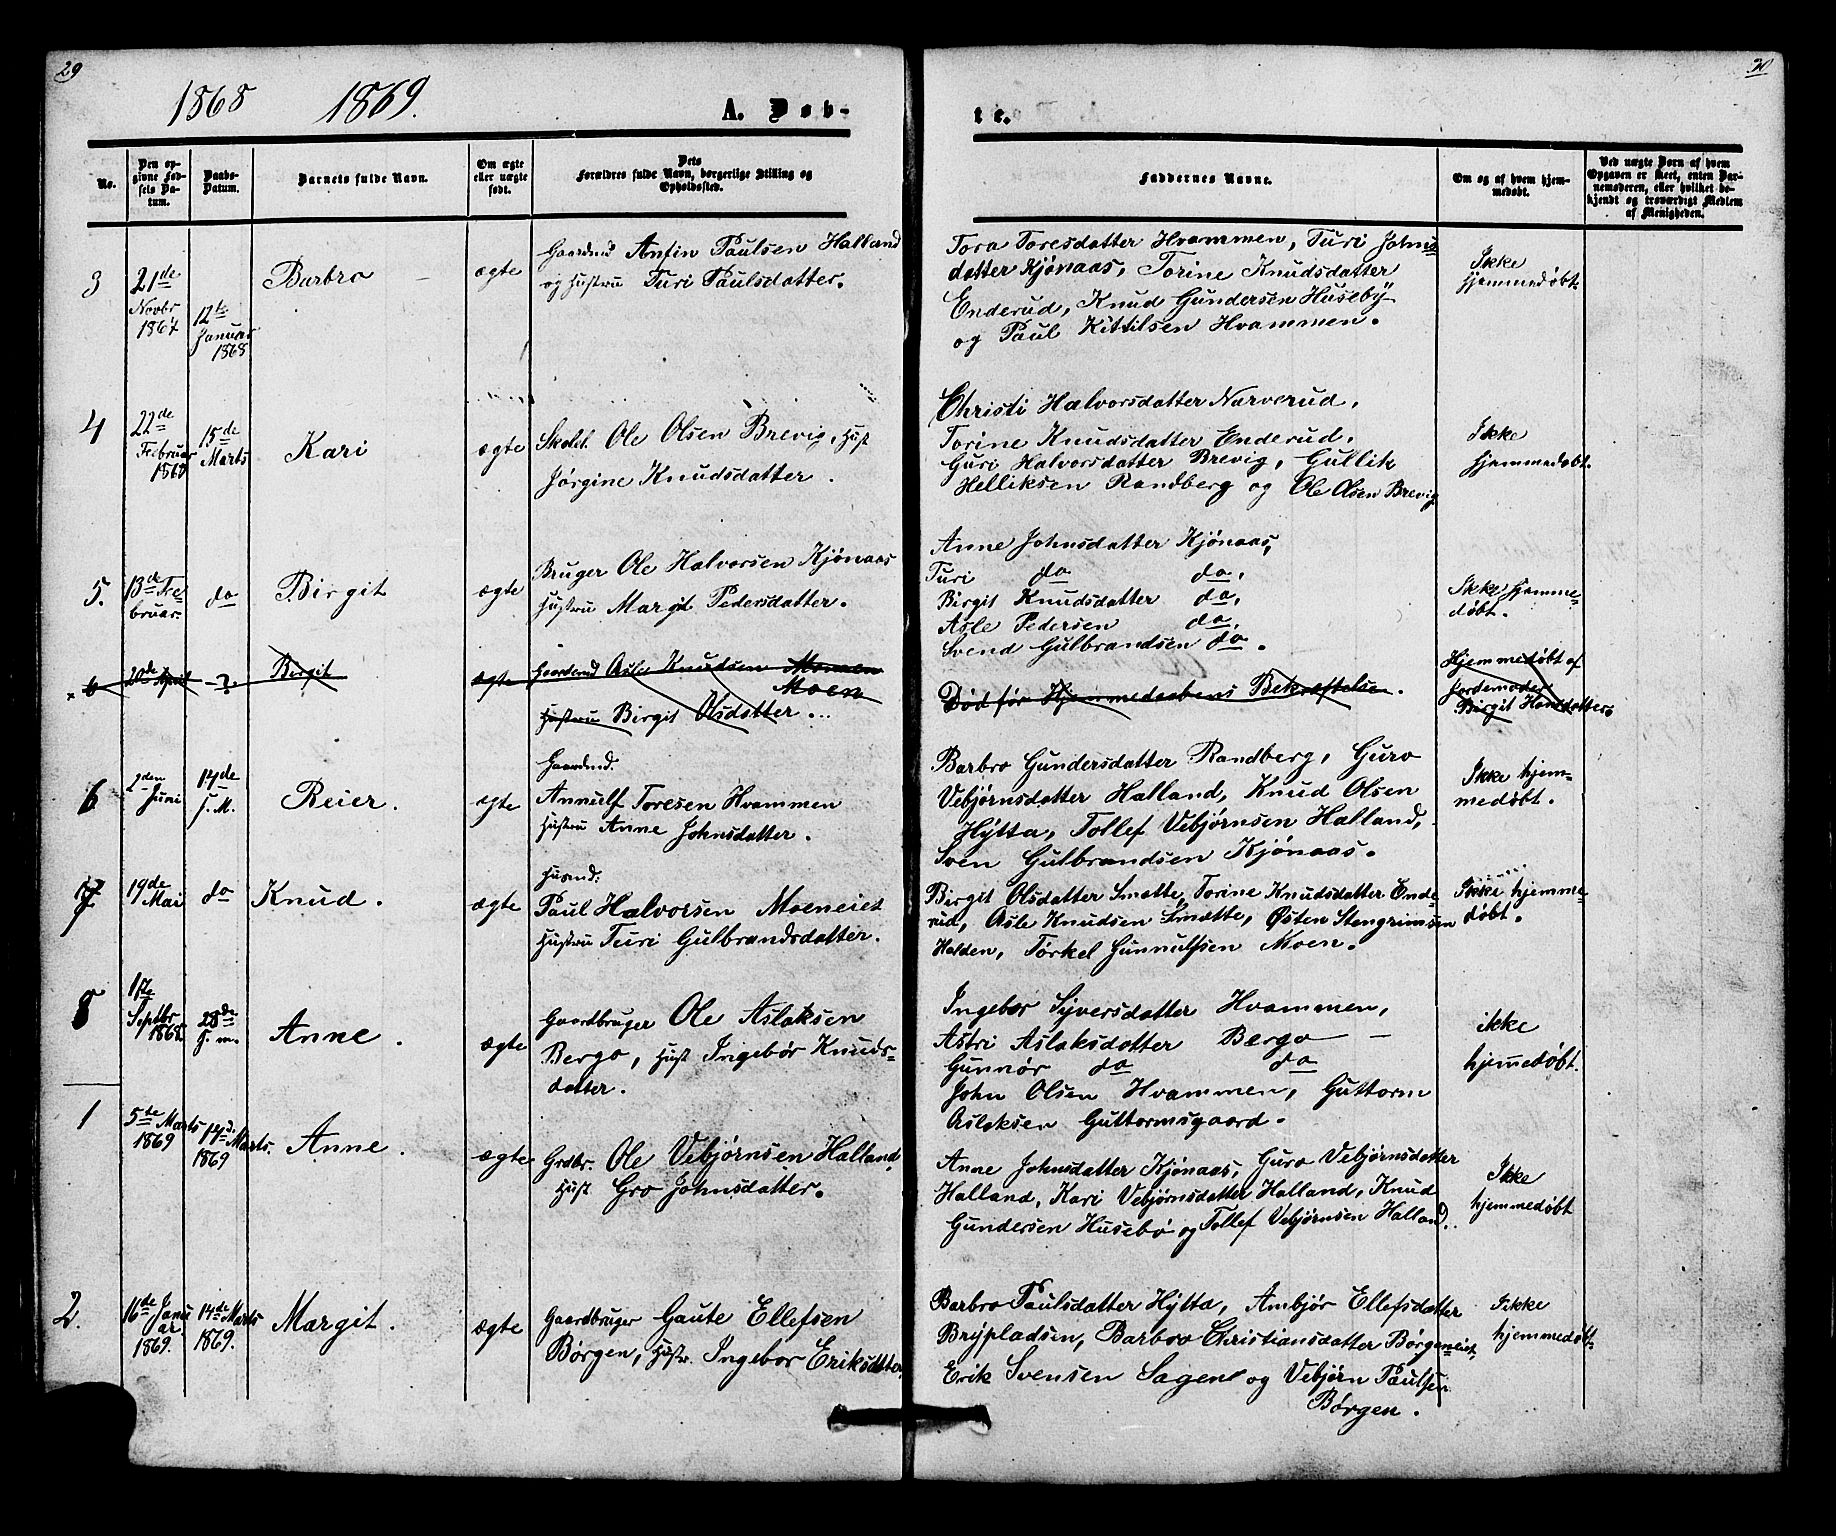 29
30
1868 1869.
A. Døb-
te.
No.
Den op-
givne Fød-
sels Da-
tum.
Daabs-
Datum.
Barnets fulde Navn.
Om ægte
eller uægte
født.
Dets
Forældres fulde Navn, borgerlige Stilling og
Opholdssted.
Faddernes Navne.
Om og af hvem hjem-
medøbt.
Ved uægte Børn af hvem
Opgaven er skeet, enten Bar-
nemoderen, eller hvilket be-
kjendt og troværdigt Medlem
af Menigheden.
3
21de
Novbr
1867
12te
Januar
1868
Barbro
ægte
Gaardmd Anfin Paulsen Halland
og Hustru Turi Paulsdatter.
Tora Toresdatter Hvammen, Turi Johns-
datter Kjønaas, Torine Knudsdatter
Enderud, Knud Gundersen Huseby
og Paul Kittilsen Hvammen.
Ikke
hjemmedøbt.
4
22de
Februar
1868
15de
Marts
Kari
ægte
Skolel. Ole Olsen Brevig, Hust
Jørgine Knudsdatter.
Christi Halvorsdatter Narverud,
Torine Knudsdatter Enderud,
Guri Halvorsdatter Brevig, Gullik
Helliksen Randberg og Ole Olsen Brevig
Ikke
hjemmedøbt.
5.
13de Fe-
bruar.
do
Birgit
ægte
Bruger Ole Halvorsen Kjønaas
Hustru Margit Pedersdatter.
Anne Johnsdatter Kjønaas,
Turi do do,
Birgit Knudsdatter do,
Asle Pedersen do,
Svend Gulbrandsen do.
Ikke hjemme-
døbt.
6
20de April
-?-
Birgit
ægte
Gaardmd Asle Knudsen Moenen
Moen
Hustru Birgit Olsdatter...
Død før Hjemmedaabens Bekræftelse.
Hjemmedøbt af
Jordemoder
Birgit Hansdatter
6
2den
Juni
14de
s. M.
Reier.
ægte
Gaardmd.
Annulf Toresen Hvammen
Hustru Anne Johnsdatter.
Barbro Gundersdatter Randberg, Guro
Vebjørnsdatter Halland, Knud Olsen
Hytta, Tollef Vebjørnsen Halland,
Sven Gulbrandsen Kjønaas.
Ikke hjem-
medøbt.
7
19de
Mai
do
Knud.
ægte
Husmd:
Paul Halvorsen Moeneiet
Hustru Turi Gulbrandsdatter.
Birgit Olsdatter Smette, Torine Knudsdatter Ende-
rud, Asle Knudsen Smette, Østen Stengrimsen
Halden, Torkel Gunnulfsen Moen.
Ikke hjemme-
døbt.
8
1ste
Septbr
1868
28de
s. m.
Anne.
ægte
Gaardbruger Ole Aslaksen
Bergo, Hust Ingebør Knuds-
datter.
Ingebor Syversdatter Hvammen,
Astri Aslaksdatter Bergo
Gunnør do do
John Olsen Hvammen, Guttorm
Aslaksen Guttormsgaard.
ikke
hjemedøbt.
1
5te Marts
1869
14d. Marts.
1869
Anne.
ægte
Grdbr. Ole Vebjørnsen Halland,
Hust Gro Johnsdatter.
Anne Johnsdatter Kjønaas, Guro Vebjørnsdatter
Halland, Kari Vebjørnsdatter Halland, Knud
Gundersen Husebø og Tollef Vebjørnsen Halland.
Ikke
hjemmedøbt
2.
16de Janu
ar
1869.
14de Marts
1869.
Margit.
ægte
Gaardbruger Gaute Ellefsen
Børgen, Hustr. Ingebor Eriksdatter,
Barbro Paulsdatter Hytta, Ambjør Ellefsdatter
Brypladsen, Barbro Christiansdatter Børgeneiet,
Erik Svensen Sagen og Vebjørn Paulsen
Børgen.
Ikke
hjemmedøbt.